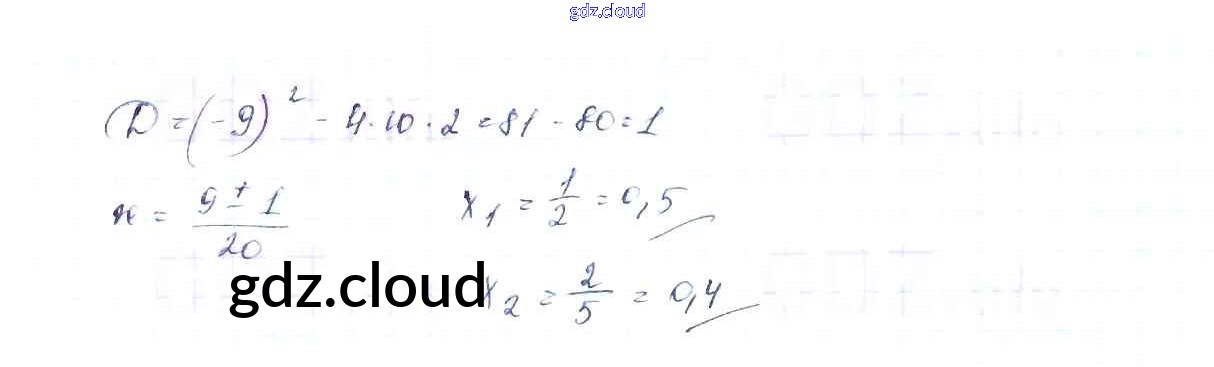 gdz.cloud
D = (-9)² - 4·10·2 = 81 - 80 = 1
x = (9 ± 1)/20 x₁ = 1/2 = 0,5
gdz.cloud x₂ = 2/5 = 0,4